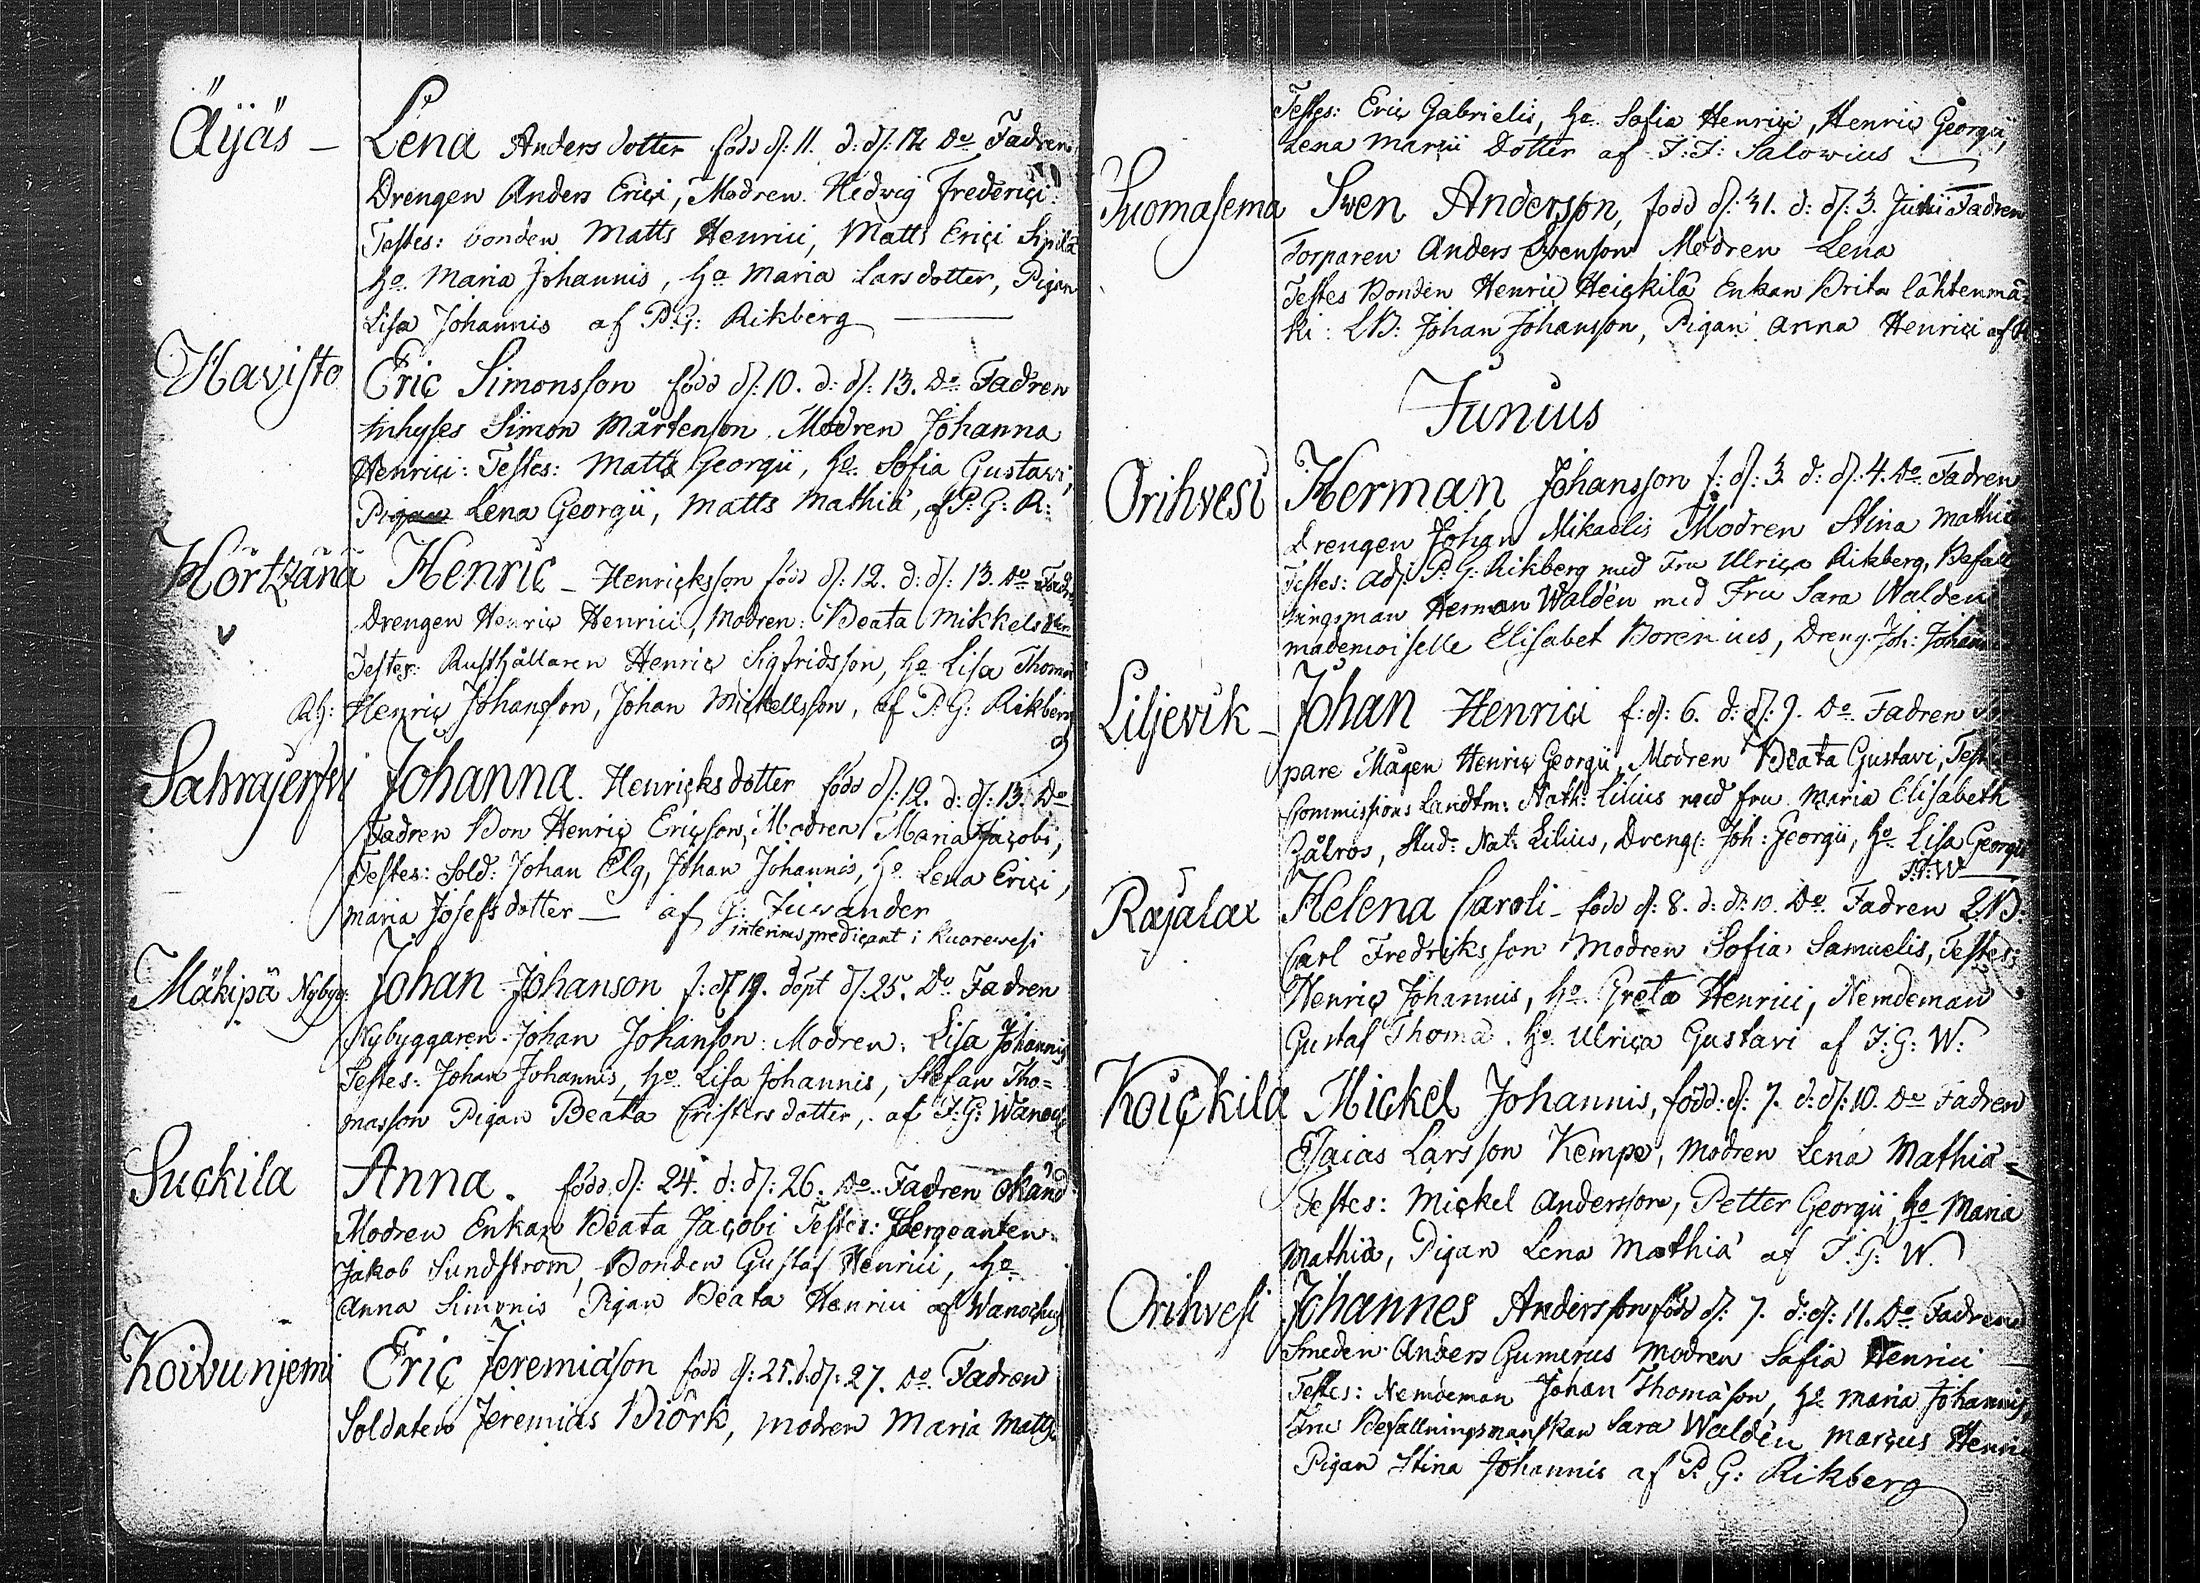 Äÿäs – Lena Anders dotter född d: 11. d: d: 12 Do Fadren
Drengen Anders Erici, Modren Hedvig Frederici:
Testes: bonden Matts Henrici, Matts Erici Sipilä
ho. Maria Johannis, ho Maria Larsdotter, Pigan
Lisa Johannis af P: G: Rikberg
Havisto Eric Simonsson född d: 10. d: d: 13. Do Fadren
Inhyses Simon Mårtenson. Modren Johanna
Henrici: Testes: Matts Georgii, ho. Sofia Gustavi,
Pigan Lena Georgii, Matts Mathiæ, af P: G: R:
Hörtzänä Henric – Henricksson född d: 12. d: d: 13. Do Fadren
Drengen Henric Henrici, Modren: Beata Mikkels dter
Testes: Rusthållaren Henric Sigfridsson, ho Lisa Thomæ
Rh: Henric Johansson, Johan Mickellsson, af P: G: Rikberg
Sahrajerfvi Johanna. Henricks dotter född d: 12. d: d: 13. Do
Fadren Bon Henric Ericsson, Modren Maria Jacobi,
Testes: Sold: Johan Elg, Johan Johannis, ho Lena Erici,
Maria Josefs dotter – af G: Juvander
interims predicant i Kuorevesi
Mäkipä Nybyg: Johan Johanson f: d 19. döpt d: 25. Do Fadren
Nybyggaren Johan Johanson: Modren: Lisa Johannis
Testes: Johan Johannis, ho. Lisa Johannis, Stefan Tho=
masson Pigan Beata Cristers dotter, af J: G: Wanoch
Suckila Anna. född d: 24. d: d: 26. Do Fadren okänd
Modren Enkan Beata Jacobi Testes: Sergeanten
Jakob Sundstrom, Bonden Gustaf Henrici, ho
Anna Simonis Pigan Beata Henrici af Wanochus
Koivunjemi Eric Jeremiason född d: 25. d: d: 27. Do Fadren
Soldaten Jeremias Biörk, modren Maria Matts
Testes: Eric Gabrielis, ho. Sofia Henrici, Henric Georgii,
Lena Marcii Dotter af J: J: Salovius
Suomasema Sven Anderson, född d: 31. d: d: 3. Junii Fadren
Torparen Anders Svenson Modren Lena
Testes Bonden Henric Heickilä Enkan Brita Lähtenmä=
ki: LB: Johan Johansson, Pigan Anna Henrici af
Junius
Orihvesi Herman Johansson f: d: 3. d: d: 4. Do. Fadren
Drengen Johan Mikaelis Modren Stina Mathiæ
Testes: Adj: P: G: Rikberg med Fru Ulrica Rikberg, Befall
ningsman Herman Waldén med Fru Sara Walden
mademoiselle Elisabet Borenius, Dreng: Joh: Johan
Liljevik – Johan Henrici f: d: 6. d: d: 9. Do. Fadren
pare Mågen Henric Georgii, Modren Beata Gustavi, Testes
Commissions Landtm: Nath: Lilius med fru Maria Elisabeth
Zålros, Stud: Nat: Lilius, Dreng: Joh: Georgii, ho Lisa Georgii
J: G: W
Rajalax Helena Caroli – född d: 8. d: d: 10. Do Fadren LB:
Carl Fredriksson Modren Sofia Samuelis, Testes:
Henric Johannis, ho. Greta Henrici, Nemdeman
Gustaf Thomæ. ho Ulrica Gustavi af J: G: W:
Koickila Mickel Johannis, född: d: 7. d: d: 10. Do Fadren
Esaias Larsson Kempe, modren Lena Mathiæ
Testes: Mickel Andersson, Petter Georgii, ho Maria
Mathiæ, Pigan Lena Mathiæ af J: G: W
Orihvesi Johannes Andersson född d: 7. d: d: 11. Do Fadren
Smeden Anders Gumerus Modren Sofia Henrici
Testes: Nemdeman Johan Thomæson, ho Maria Johannis,
Fru Befallningsmanskan Sara Waldén Marcus Henrici
Pigan Stina Johannis af P: G: Rikberg